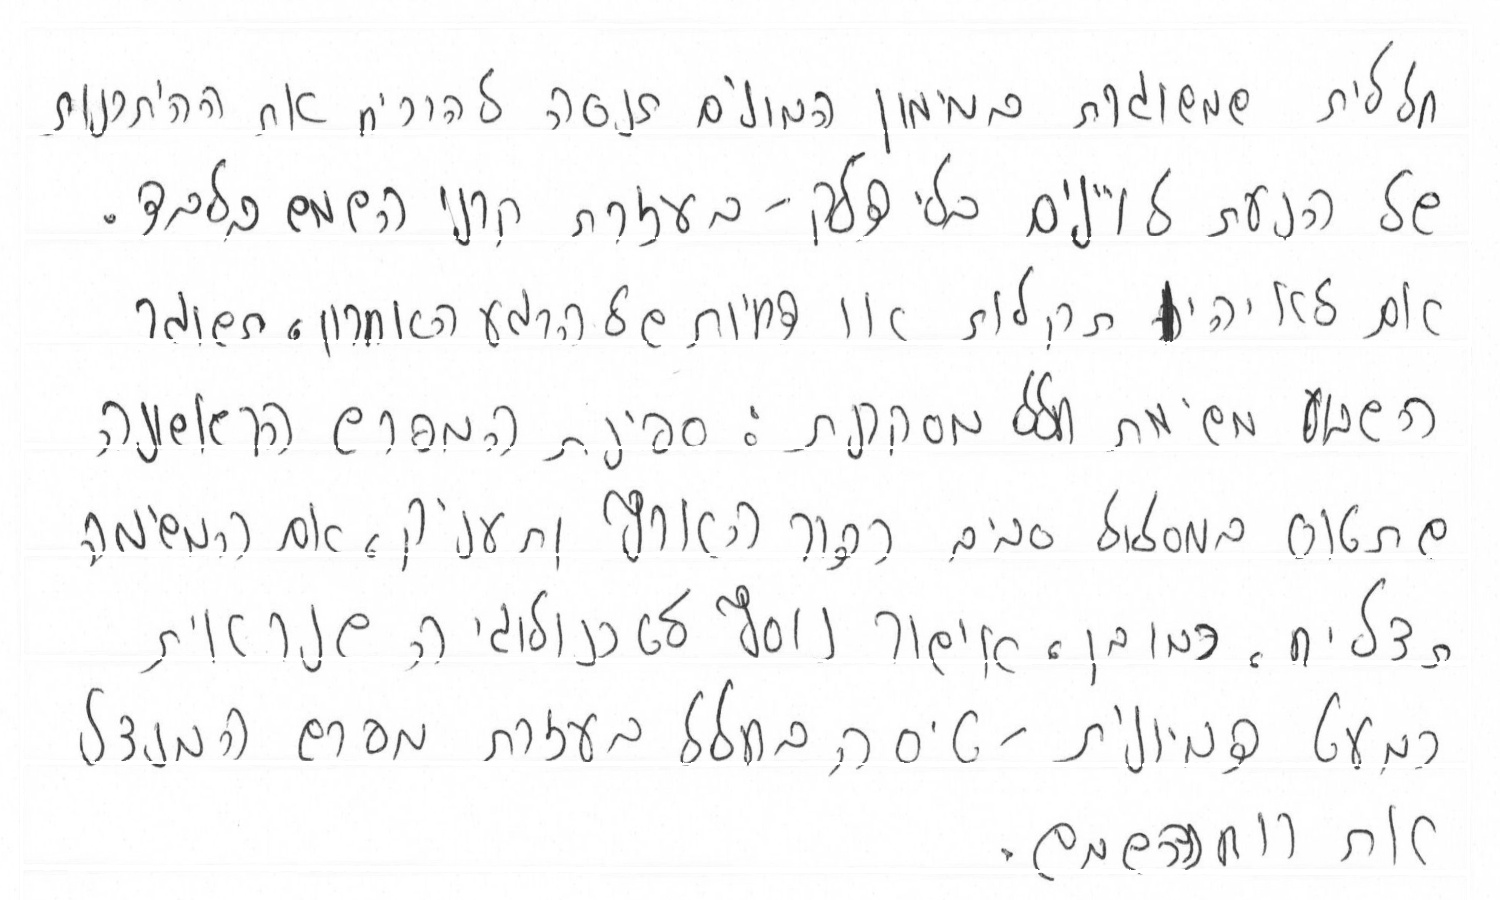 חללית שמשוגרת במימון המונים תנסה להוכיח את ההיתכנות
של הנעת לויינים בלי דלק - בעזרת קרני השמש בלבד.
אם לא יהיו תקלות או דחיות של הרגע האחרון, תשוגר
השבוע משימת חלל מסקרנת: ספינת המפרש הראשונה
שתטוס במסלול סביב כדור הארץ ותעניק, אם המשימה
תצליח, כמובן, אישור נוסף לטכנולוגיה שנראית
כמעט דמיונית - טיסה בחלל בעזרת מפרש המנצל
את רוח השמש.